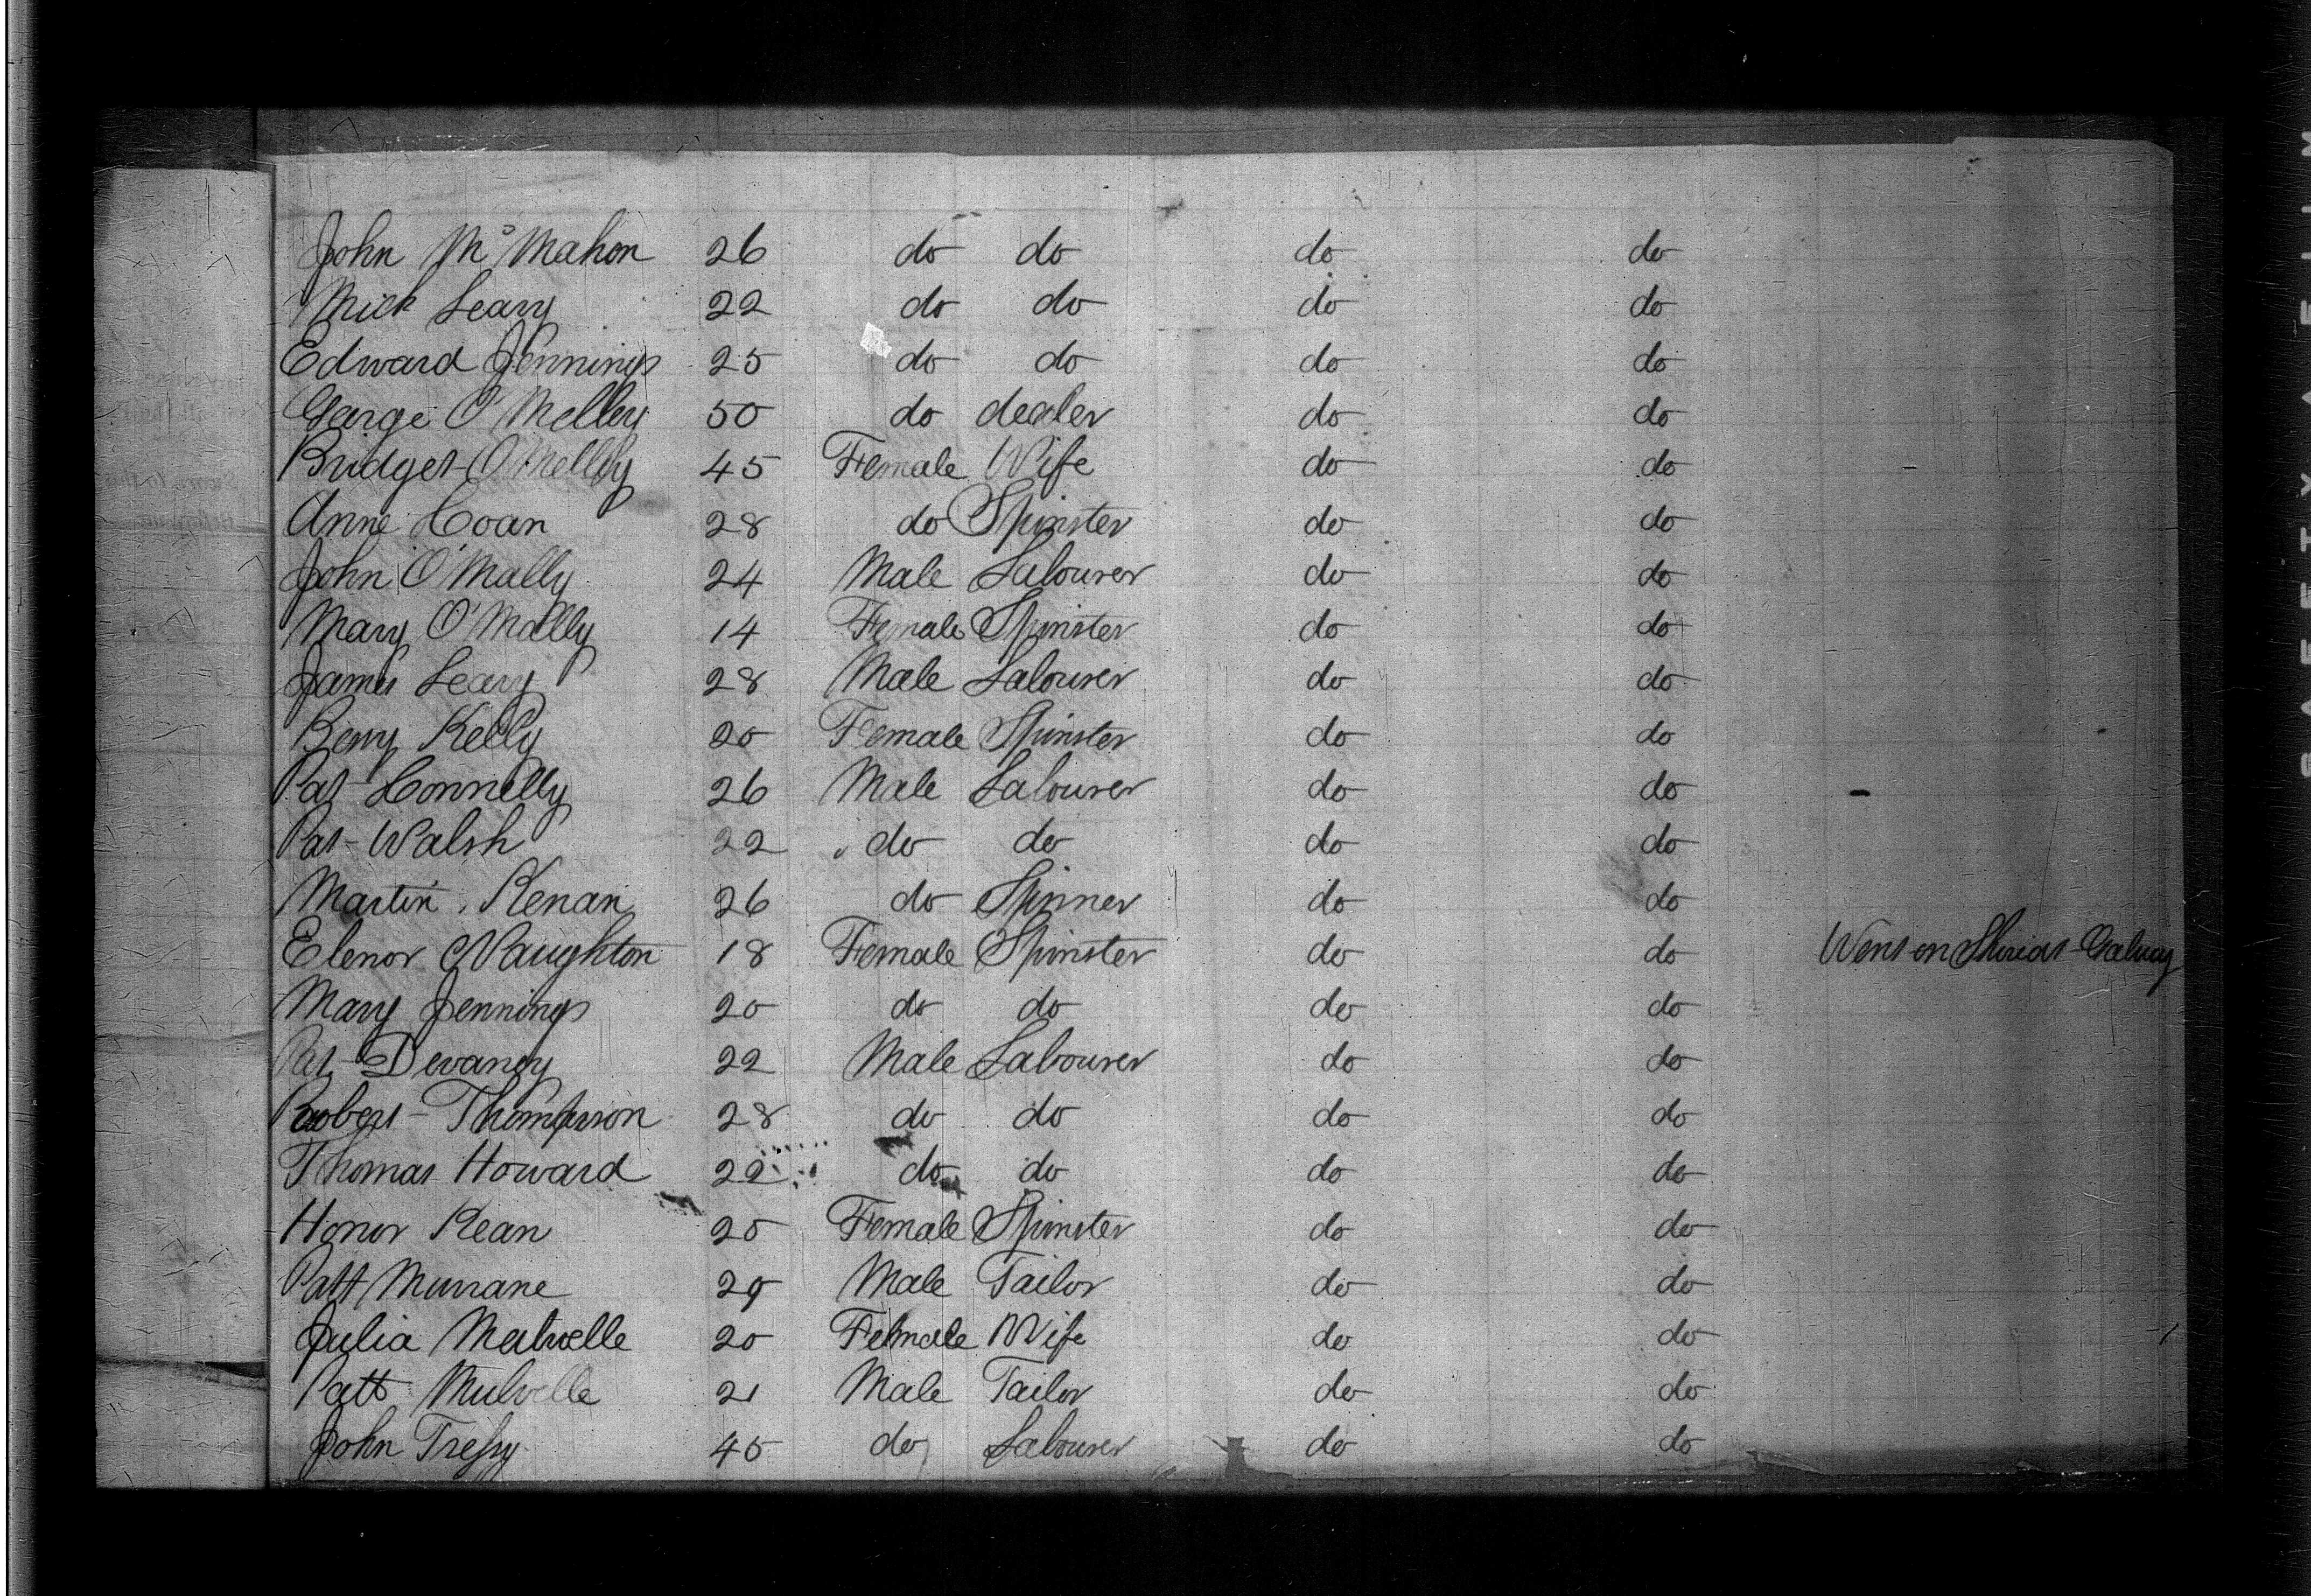 John Mc Mahon 26 do do do do
Mick Leary 22 do do do do
Edward Jennings 25 do do do do
George O'Melley 50 do dealer do do
Bridget O'Melley 45 Female Wife do do
Anne Coan 28 do Spinster do do
John O'Mally 24 Male Labourer do do
Mary O'Mally 14 Female Spinster do do
James Leary 28 Male Labourer do do
Kelly 20 Female Spinster do do
Pat Connelly 26 Male Labourer do do
Pat Walsh 22 do do do do
Martin Kenan 26 do Spinner do do
Elenor Naughton 18 Female Spinster do do Went on Galway
Mary Jennings 20 do do do do
Pat Devaney 22 Male Labourer do do
Robert Thompson 28 do do do do
Thomas Howard 22 do do do do
Honor Kean 20 Female Spinster do do
Patt Murrane 29 Male Tailor do do
Julia 20 Female Wife do do
Patt Mulvelle 21 Male Tailor do do
John 45 do Labourer do do